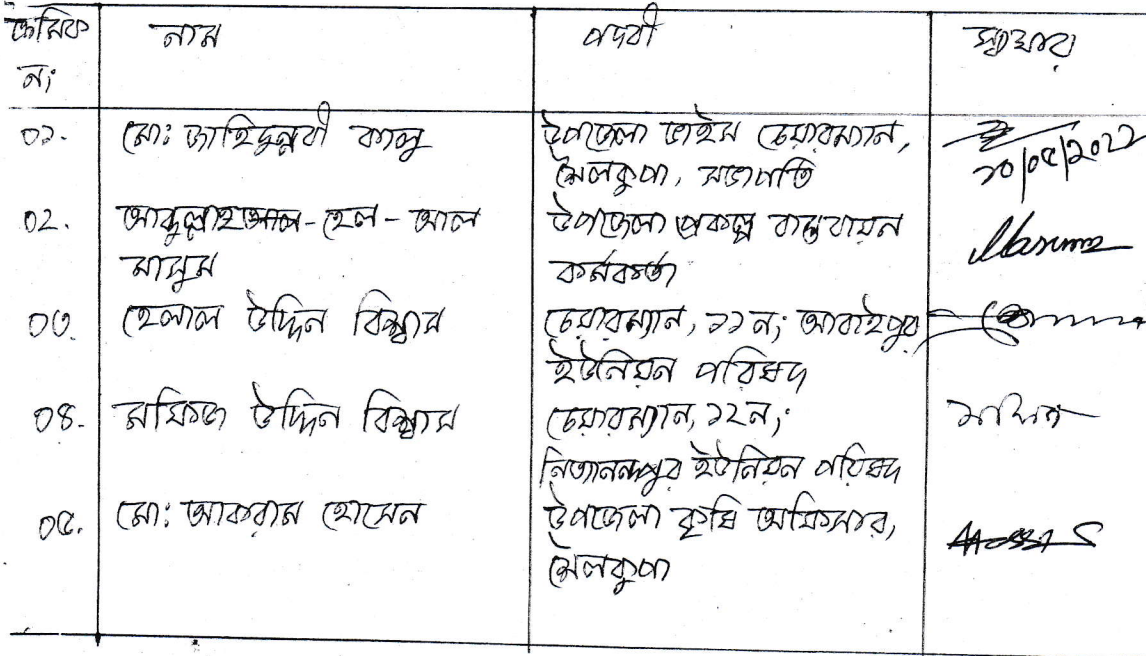 ক্রমিক নং নাম পদবী স্বাক্ষর
০১. মো: জাহিদুন্নবী কালু উপজেলা ভাইস চেয়ারম্যান,
শৈলকুপা, সভাপতি
১০/০৫/২০২২
০২. আব্দুল্লাহ আল-হেল-আল উপজেলা প্রকল্প বাস্তবায়ন
মাসুম কর্মকর্তা
Masum
০৩. হেলাল উদ্দিন বিশ্বাস চেয়ারম্যান, ১১নং আবাইপুর
ইউনিয়ন পরিষদ
০৪. মফিজ উদ্দিন বিশ্বাস চেয়ারম্যান, ১২নং
নিত্যানন্দপুর ইউনিয়ন পরিষদ
০৫. মো: আকরাম হোসেন উপজেলা কৃষি অফিসার,
শৈলকুপা